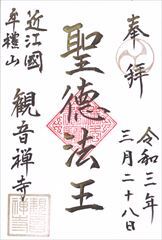 奉拝
令和三年
三月二十八日
聖徳法王
近江國
牟禮山
観音禅寺